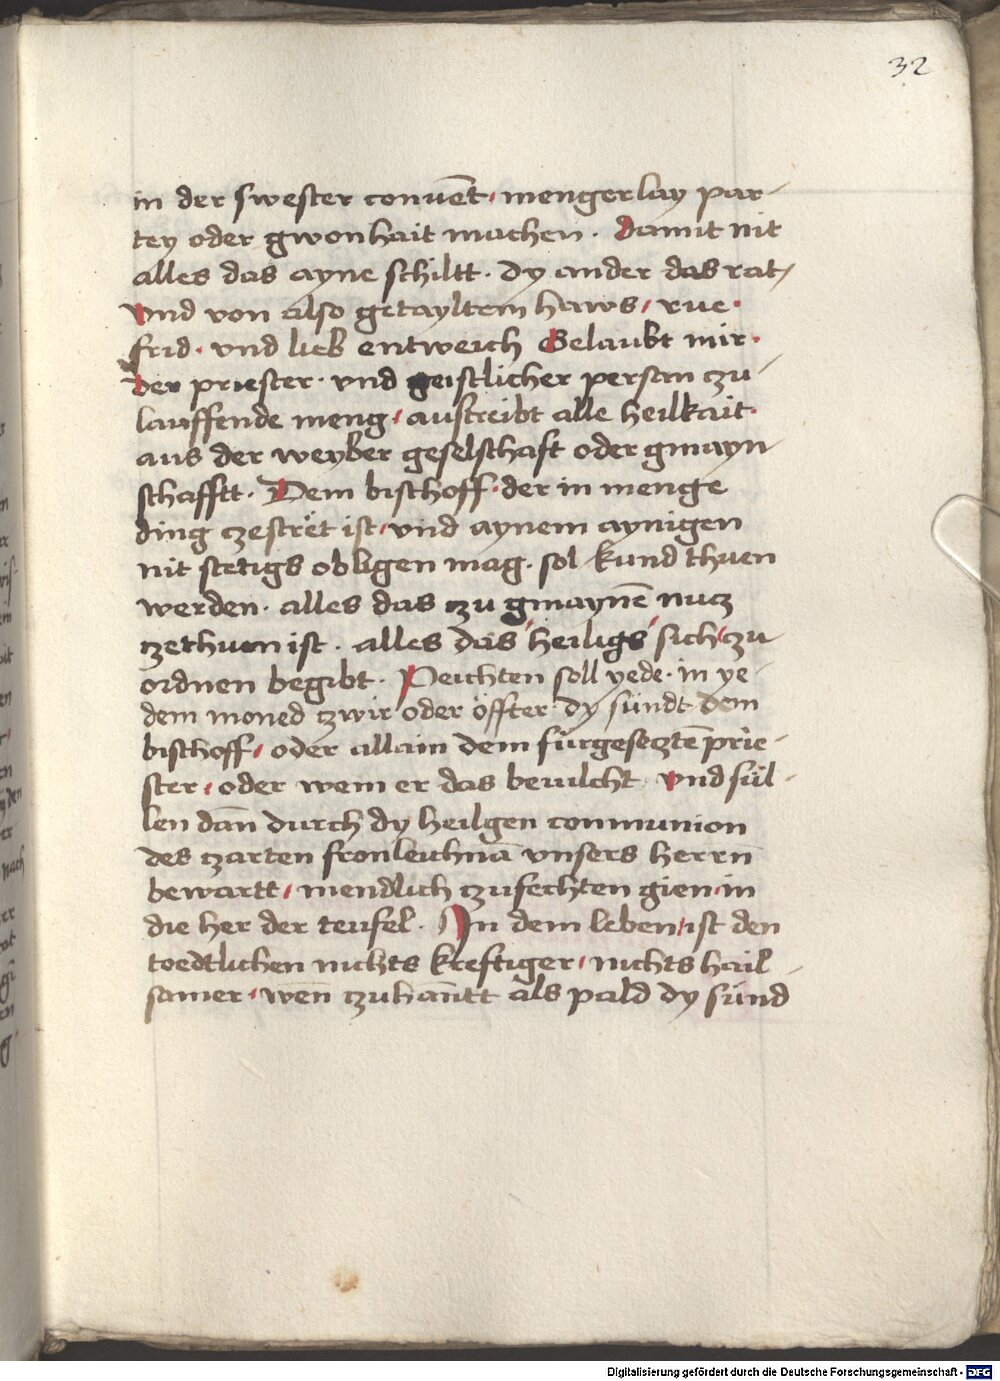 32
in der swester conuēt, mengerlay par-
tey oder gwonhait machen. damit nit
alles das ayne schiltt. dy ander das rat,
vnd von also getayltem haws, rue.
frid. vnd lieb entweich Gelaubt mir.
der priester. vnd geistlicher person zu-
lauffende meng, austreibt alle heilkait.
aus der weyber geselschaft oder gmayn-
schafftt. Dem bischoff. der in menge
ding czestrët ist, vnd aynem aynigen
nit stetigs obligen mag. sol kund thuen
werden. alles das zu gmaynē nucz
zethuen ist. alles das heiligs sich, zu
ordnen begibt. Peichten soll yede. in ye-
dem moned zwir oder öffter. dy sündt dem
bischoff, oder allain dem fürgesecztē prie-
ster, oder wem er das beuilcht vnd sül-
len dan̄ durch dy heilgen communion
des zarten fronleichnā vnsers herrn̄
bewartt, mendlich zufechten gien, in
die her der teufel. In dem leben, ist den
toedtlichen nichts kreftiger, nichts hail-
samer, wen̄ zuhan̄tt als pald dy sünd
Digitalisierung gefördert durch die Deutsche Forschungsgemeinschaft - DFG